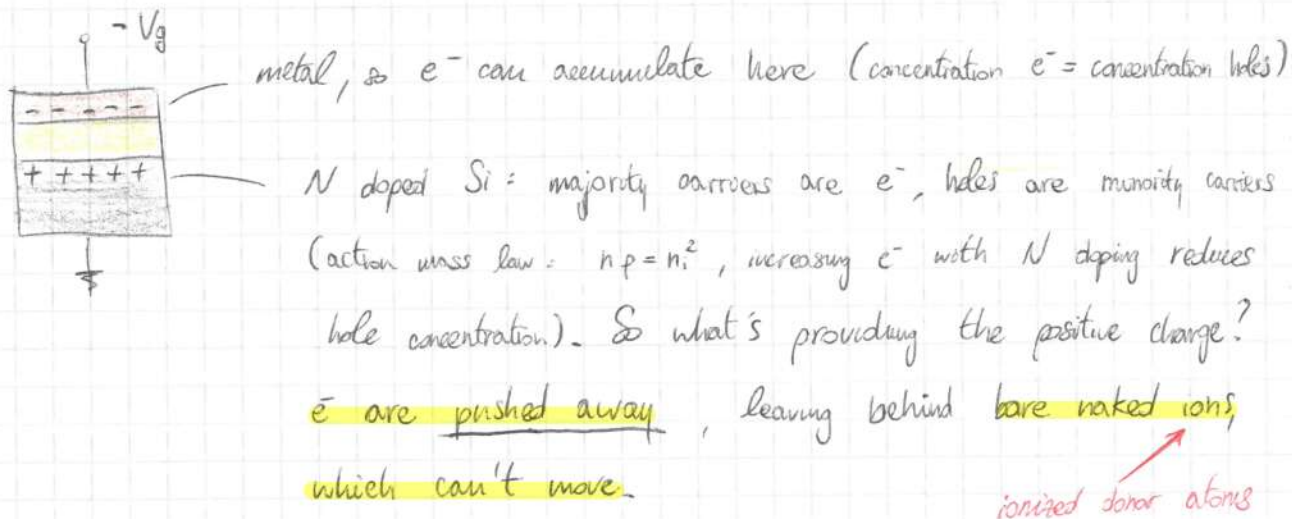 - Vg
metal, so e⁻ can accumulate here (concentration e⁻ = concentration holes)
- - - - -
+ + + + +
N doped Si : majority carriers are e⁻, holes are minority carriers
(action mass law : n p = nᵢ², increasing e⁻ with N doping reduces
hole concentration). So what's providing the positive charge?
e⁻ are pushed away , leaving behind bare naked ions,
which can't move.
ionized donor atoms